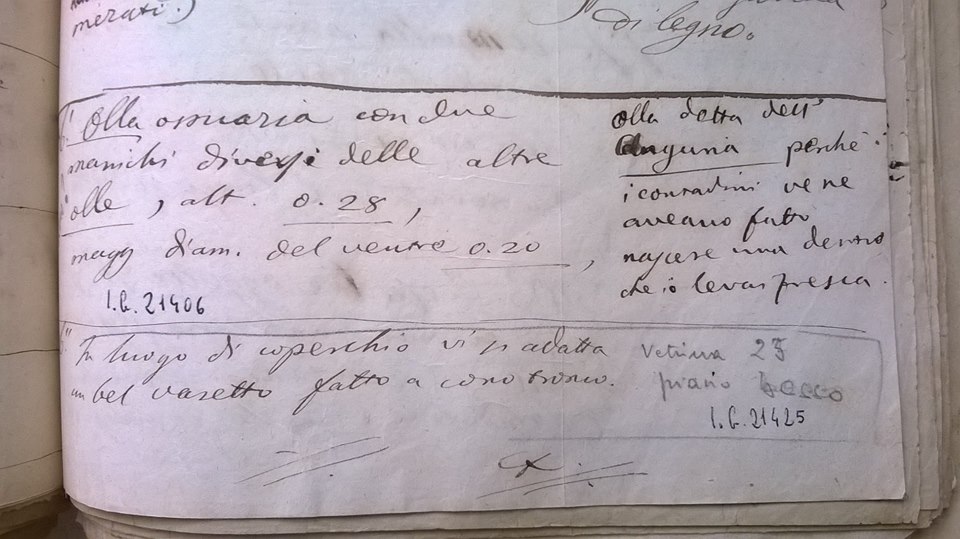 merati.)
di legno.
Olla ossuaria con due
manichi diversi delle altre
olle, alt. 0.28,
magg diam. del ventre 0.20,
I.G. 21406
Olla detta dell'
Anguria perchè
i contadini ve ne
aveano fatto
nascere una dentro
che io levai fresca.
In luogo di coperchio vi si adatta
un bel vasetto fatto a cono tronco.
Vetrina 25
piano
I.G. 21425